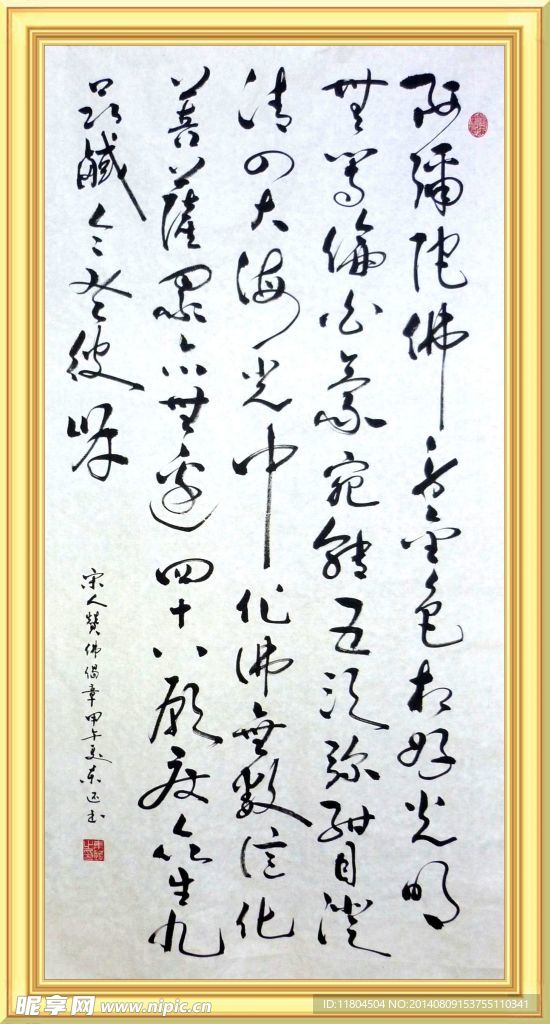 阿彌陀佛身金色相好光明
無等倫白毫宛轉五須弥紺目澄
清四大海光中化佛無数億化
菩薩眾亦無邊四十八願度众生九
品鹹令登彼岸
宋人贊佛偈章甲午夏东正书
昵享网 www.nipic.cn
ID:11804504 NO:20140809153755110341